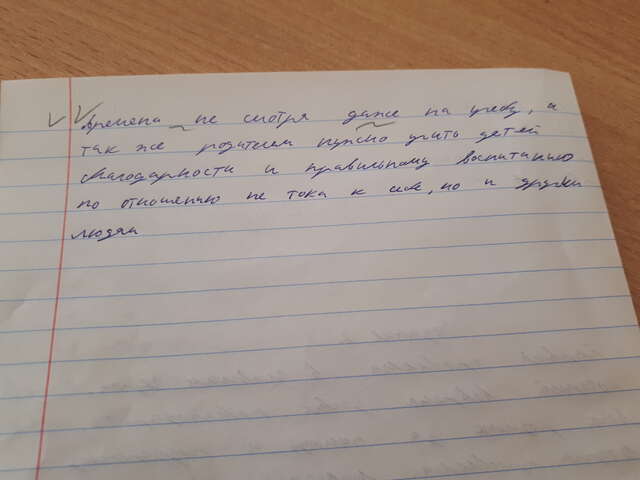 времена не смотря даже на учебу, а
так же родителям нужно учить детей
благодарности и правильному воспитанию
по отношению не тока к себе, но и другим
людям